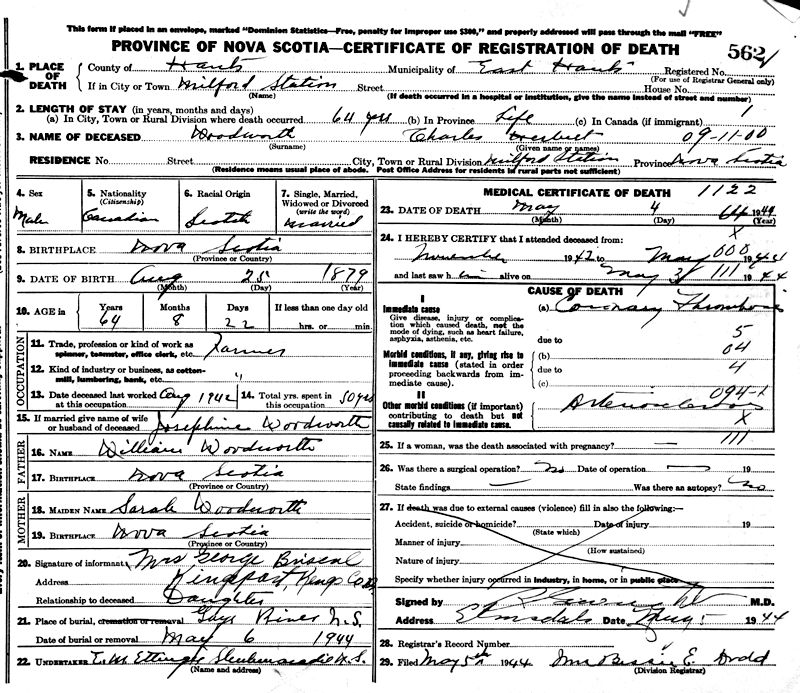 This form if placed in an envelope, marked "Dominion Statistics—Free, penalty for improper use $300," and properly addressed will pass through the mail "FREE"
PROVINCE OF NOVA SCOTIA—CERTIFICATE OF REGISTRATION OF DEATH
562
1. PLACE OF DEATH County of Hants Municipality of East Hants Registered No.
(For use of Registrar General only)
If in City or Town Milford Station Street House No.
(Name) (If death occurred in a hospital or institution, give the name instead of street and number)
2. LENGTH OF STAY (in years, months and days)
(a) In City, Town or Rural Division where death occurred 64 yrs (b) In Province Life (c) In Canada (if immigrant) 1
3. NAME OF DECEASED Woodworth Charles 09-11-00
(Surname) (Given name or names)
RESIDENCE No. Street City, Town or Rural Division Milford Station Province Nova Scotia
(Residence means usual place of abode. Post Office Address for residents in rural parts not sufficient)
4. Sex Male
5. Nationality (Citizenship) Canadian
6. Racial Origin Scotch
7. Single, Married, Widowed or Divorced (write the word) Married
8. BIRTHPLACE Nova Scotia
(Province or Country)
9. DATE OF BIRTH Aug 25 1879
(Month) (Day) (Year)
10. AGE Years 64 Months 8 Days 22 If less than one day old hrs. or min.
OCCUPATION
11. Trade, profession or kind of work as spinner, teamster, office clerk, etc. Farmer
12. Kind of industry or business, as cotton-mill, lumbering, bank, etc. "
13. Date deceased last worked at this occupation Aug 1942
14. Total yrs. spent in this occupation 50 yrs
15. If married give name of wife or husband of deceased Josephine Woodworth
FATHER
16. NAME William Woodworth
17. BIRTHPLACE Nova Scotia
(Province or Country)
MOTHER
18. MAIDEN NAME Sarah Woodworth
19. BIRTHPLACE Nova Scotia
(Province or Country)
20. Signature of informant Mrs George
Address Kingsport, Kings Co
Relationship to deceased Daughter
21. Place of burial, cremation or removal Gays River N.S.
Date of burial or removal May 6 1944
22. UNDERTAKER Shubenacadie N.S.
(Name and address)
MEDICAL CERTIFICATE OF DEATH 1122
23. DATE OF DEATH May 4 1944
(Month) (Day) (Year)
X
24. I HEREBY CERTIFY that I attended deceased from:
November 1942 to May 000 1944
and last saw him alive on May 3 111 1944
CAUSE OF DEATH
I
Immediate cause
Give disease, injury or complication which caused death, not the mode of dying, such as heart failure, asphyxia, asthenia, etc.
(a) Coronary Thrombosis
5
due to
Morbid conditions, if any, giving rise to immediate cause (stated in order proceeding backwards from immediate cause).
(b) 04
due to 4
(c)
II
Other morbid conditions (if important) contributing to death but not causally related to immediate cause.
094-1
Arteriosclerosis
X
111
25. If a woman, was the death associated with pregnancy? —
26. Was there a surgical operation? no Date of operation — 19
State findings — Was there an autopsy? no
27. If death was due to external causes (violence) fill in also the following:—
Accident, suicide or homicide? Date of injury 19
(State which)
Manner of injury
(How sustained)
Nature of injury
Specify whether injury occurred in industry, in home, or in public place
Signed by M.D.
Address Elmsdale Date 1944
28. Registrar's Record Number
29. Filed May 5th 1944 Mrs Bessie E. Dodd
(Division Registrar)